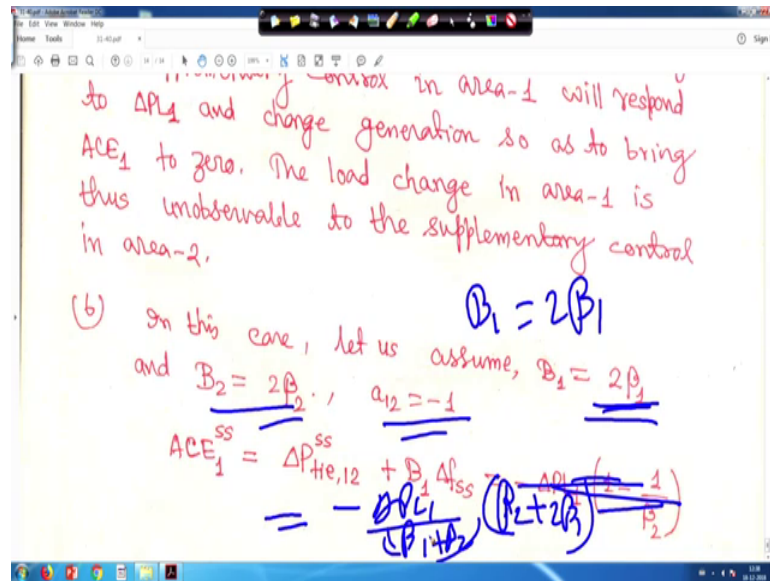 31-40.pdf - Adobe Acrobat Reader DC
File Edit View Window Help
Home Tools 31-40.pdf × Sign
14 / 14
control in area-1 will respond
to ΔPL1 and change generation so as to bring
ACE1 to zero. The load change in area-1 is
thus unobservable to the supplementary control
in area-2.
B1 = 2β1
(b) In this case, let us assume, B1 = 2β1
and B2 = 2β2., a12 = -1
ACE1^ss = ΔP^ss tie,12 + B1 Δfss = - ΔPL1 (1 - 1/β2)
= - ΔPL1/(β1+β2) (β2+2β1)